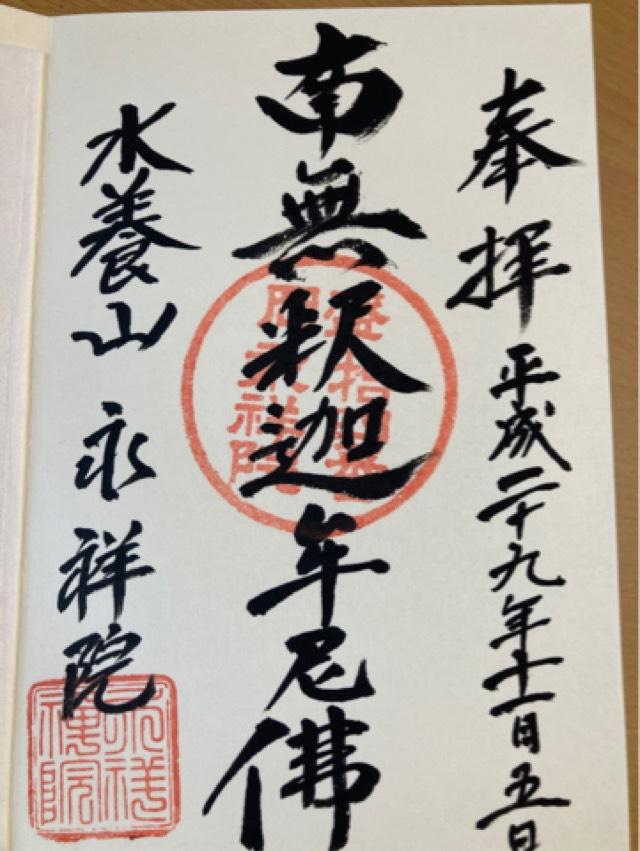 奉拝 平成二十九年十一月五日
南無釈迦牟尼佛
水養山 永祥院
永祥
禪院